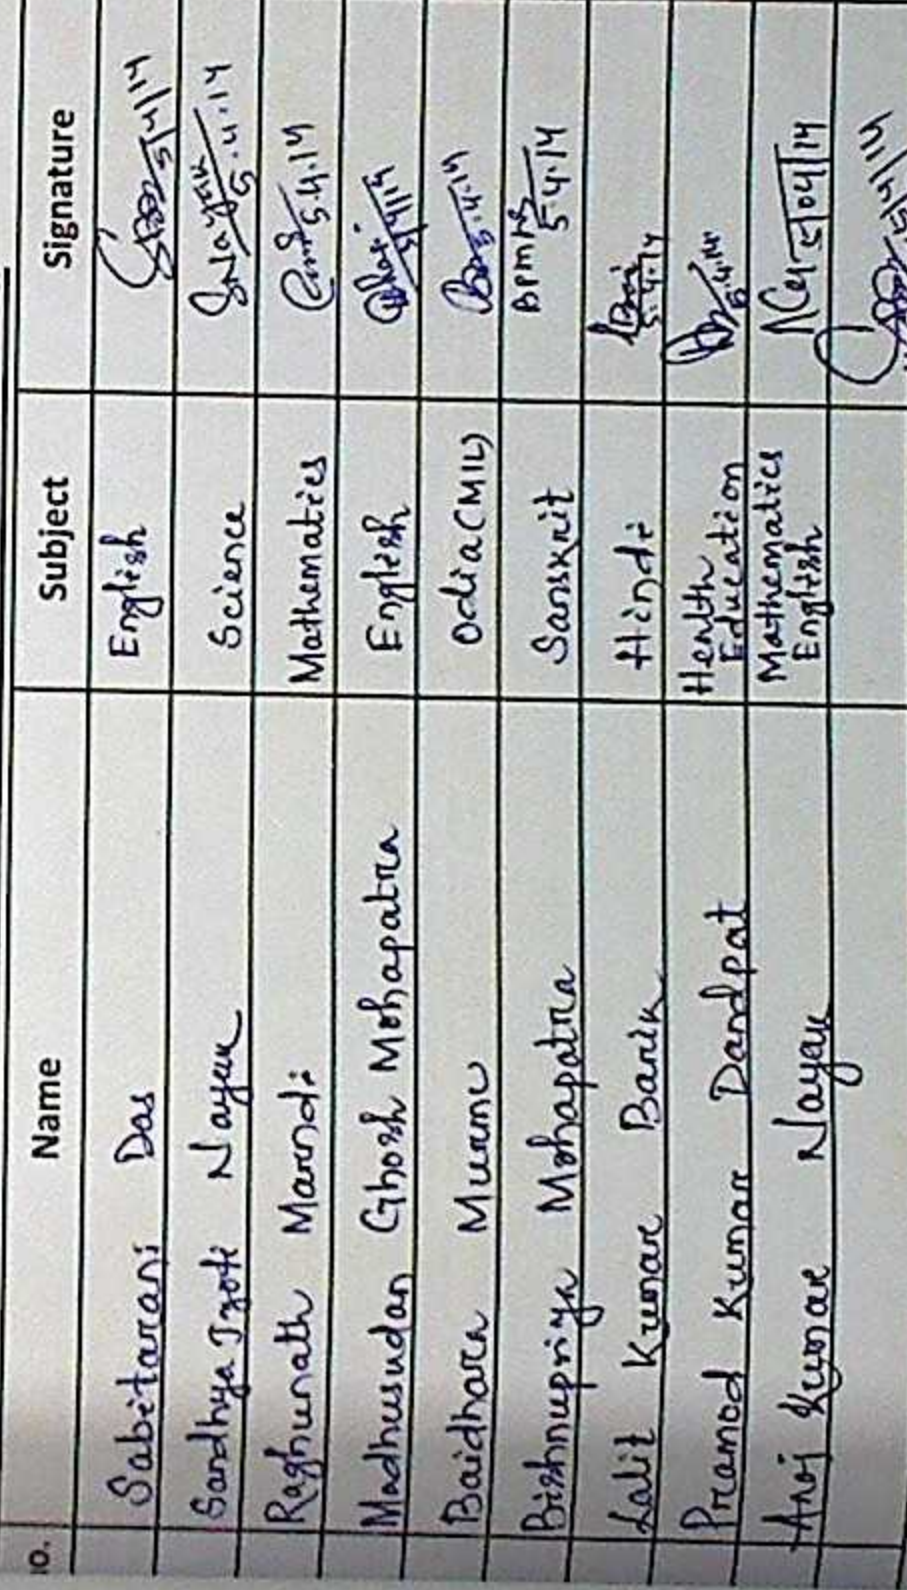 10. Name Subject Signature
Sabitarani Das English 5/4/14
Sandhya Jyoti Nayak Science SNayak 5.4.14
Raghunath Marndi Mathematics 5.4.14
Madhusudan Ghosh Mohapatra English 5/4/14
Baidhara Murmu Odia(MIL) 5.4.14
Bishnupriya Mohapatra Sanskrit BPM 5.4.14
Lalit Kumar Barik Hindi 5.4.14
Pramod Kumar Dandpat Health 5.4.14
Education
Anoj Kumar Nayak Mathematics 5/04/14
English